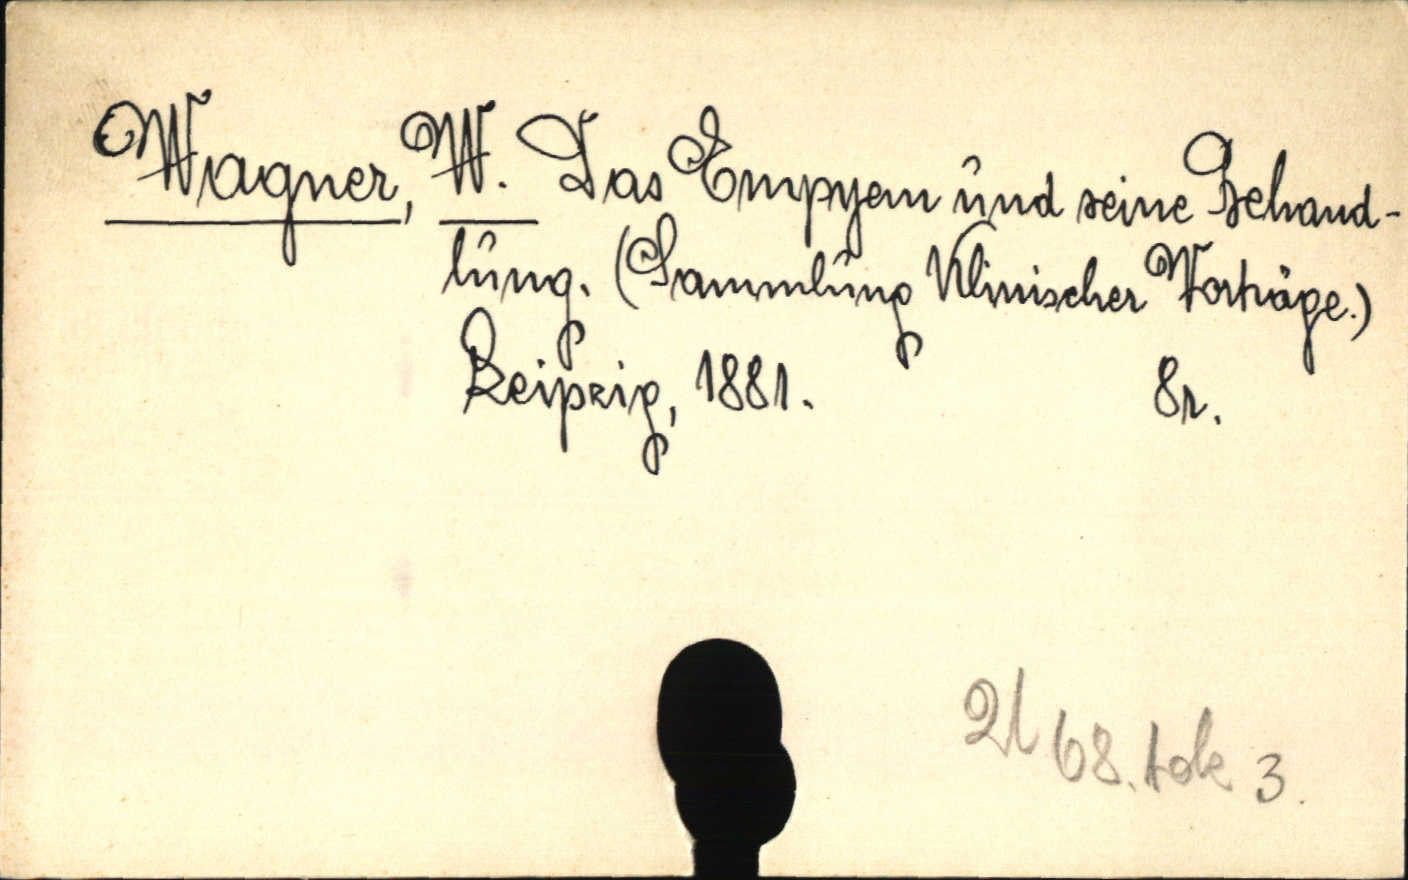 Wagner, W. Das Empyem und seine Behand-
lung. (Sammlung Klinischer Vorträge.)
Leipzig, 1881. 8r.
68. tok 3.